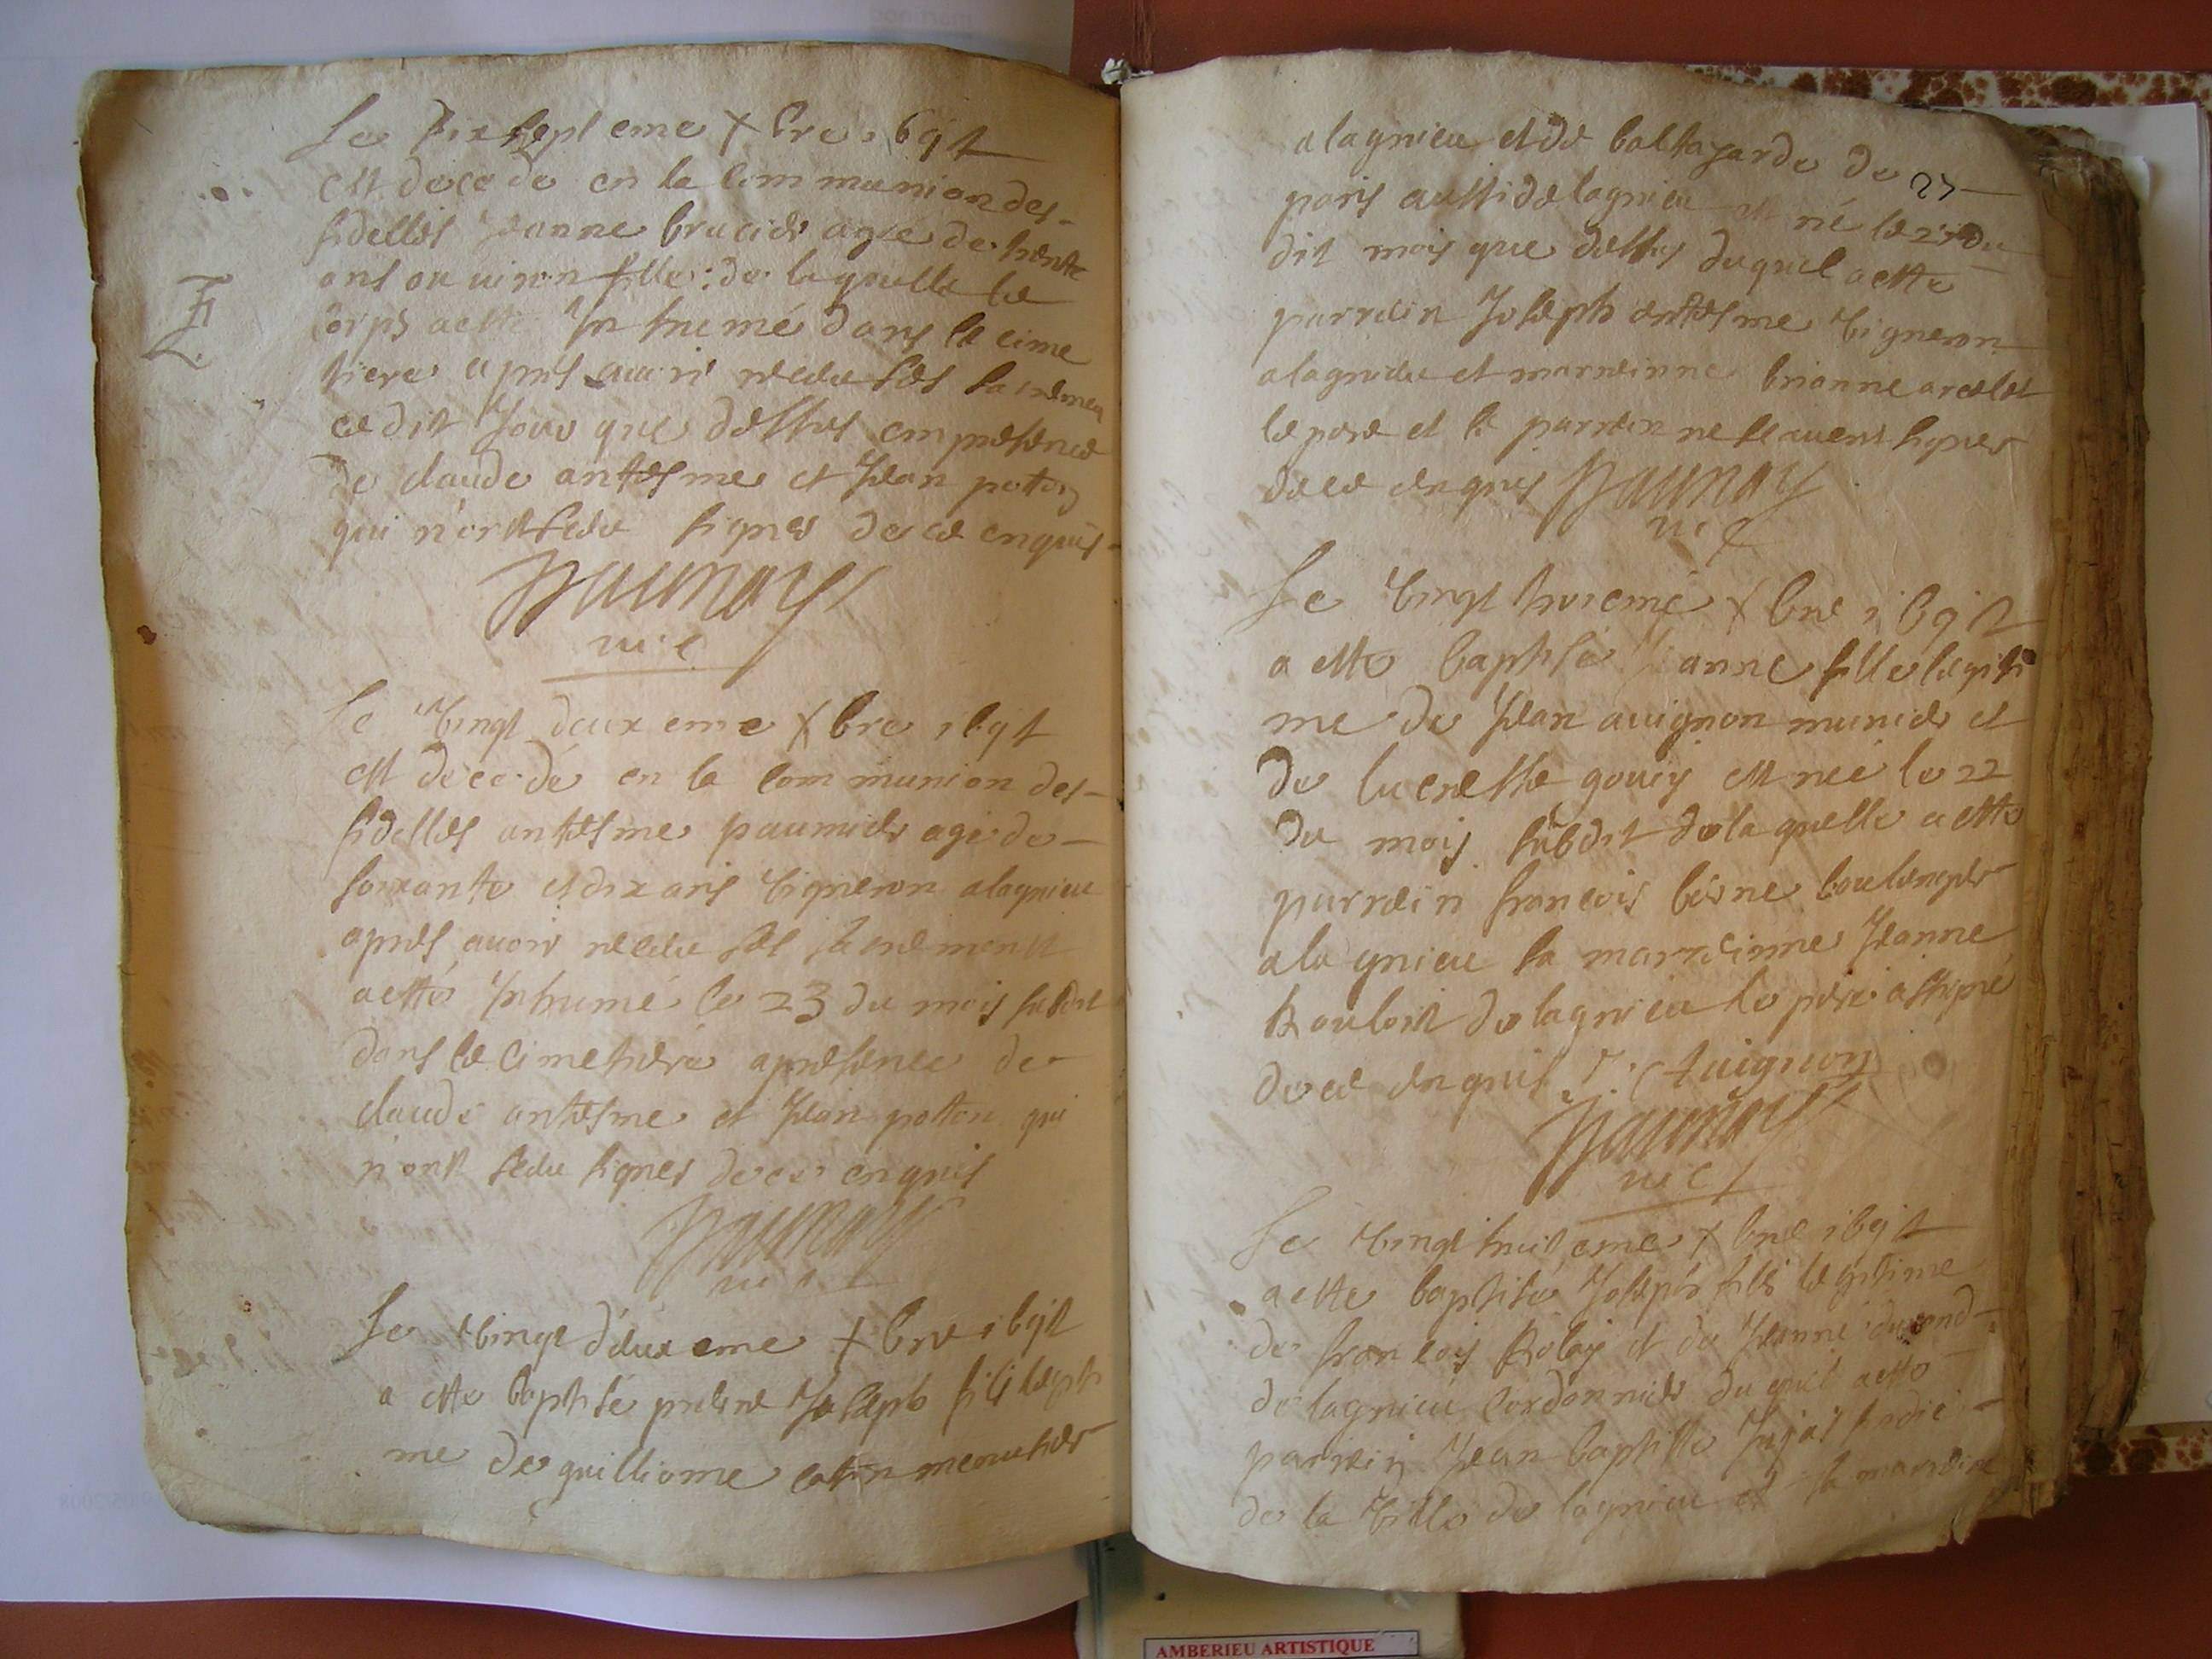 Le dixsepteme Xbre 1691
est decedé en la communion des
fidelles Jeanne agée de trente
ans ou uiron fille: de laquelle le
corps a esté Inhumé dans le cime
tiere apres auoir receu ses sacremen
ce dit Jour que dessus en presence
de claude antesme et Jean potton
qui n'ont sceu signer de ce enquis
Daumoy
vic
Le Vingt deuxeme Xbre 1691
est decedé en la communion des
fidelles antesme paumier agé de
soixante et dix ans Vigneron a lagnieu
apres auoir receu ses sacrements
a esté Inhumé le 23 du mois susdit
dans le cimetiere a presence de
claude antesme et Jean potton qui
n'ont sceu signer de ce enquis
Daumoy
Le Vingt deuxeme Xbre 1691
a esté baptisé Joseph fils legiti
me de guilliome menusier
a lagnieu et de baltazarde de
paris aussi de lagnieu est né le
dit mois que dessus duquel a esté
parrein Joseph antesme Vigneron
a lagnieu et marreinne
le pere et le parrein ne sceuent signer
de ce enquis Daumoy
vic
Le Vingt Xbre 1691
a esté baptisé Jeanne fille legiti
me de Jean auignon munier et
de lucresse gouy est née le 22
du mois susdit de laquelle a esté
parrein francois berne boulenger
a lagnieu la marreinne Jeanne
de lagnieu le pere a signé
de ce enquis J. Auignon
Daumoy
vic
Le Vingt huit eme Xbre 1691
a esté baptisé Joseph fils legitime
de francois Rolay et de Jeanne durand
de lagnieu cordonnier duquel a esté
parrein Jean baptiste
de la Ville de lagnieu et la marreine
AMBERIEU ARTISTIQUE